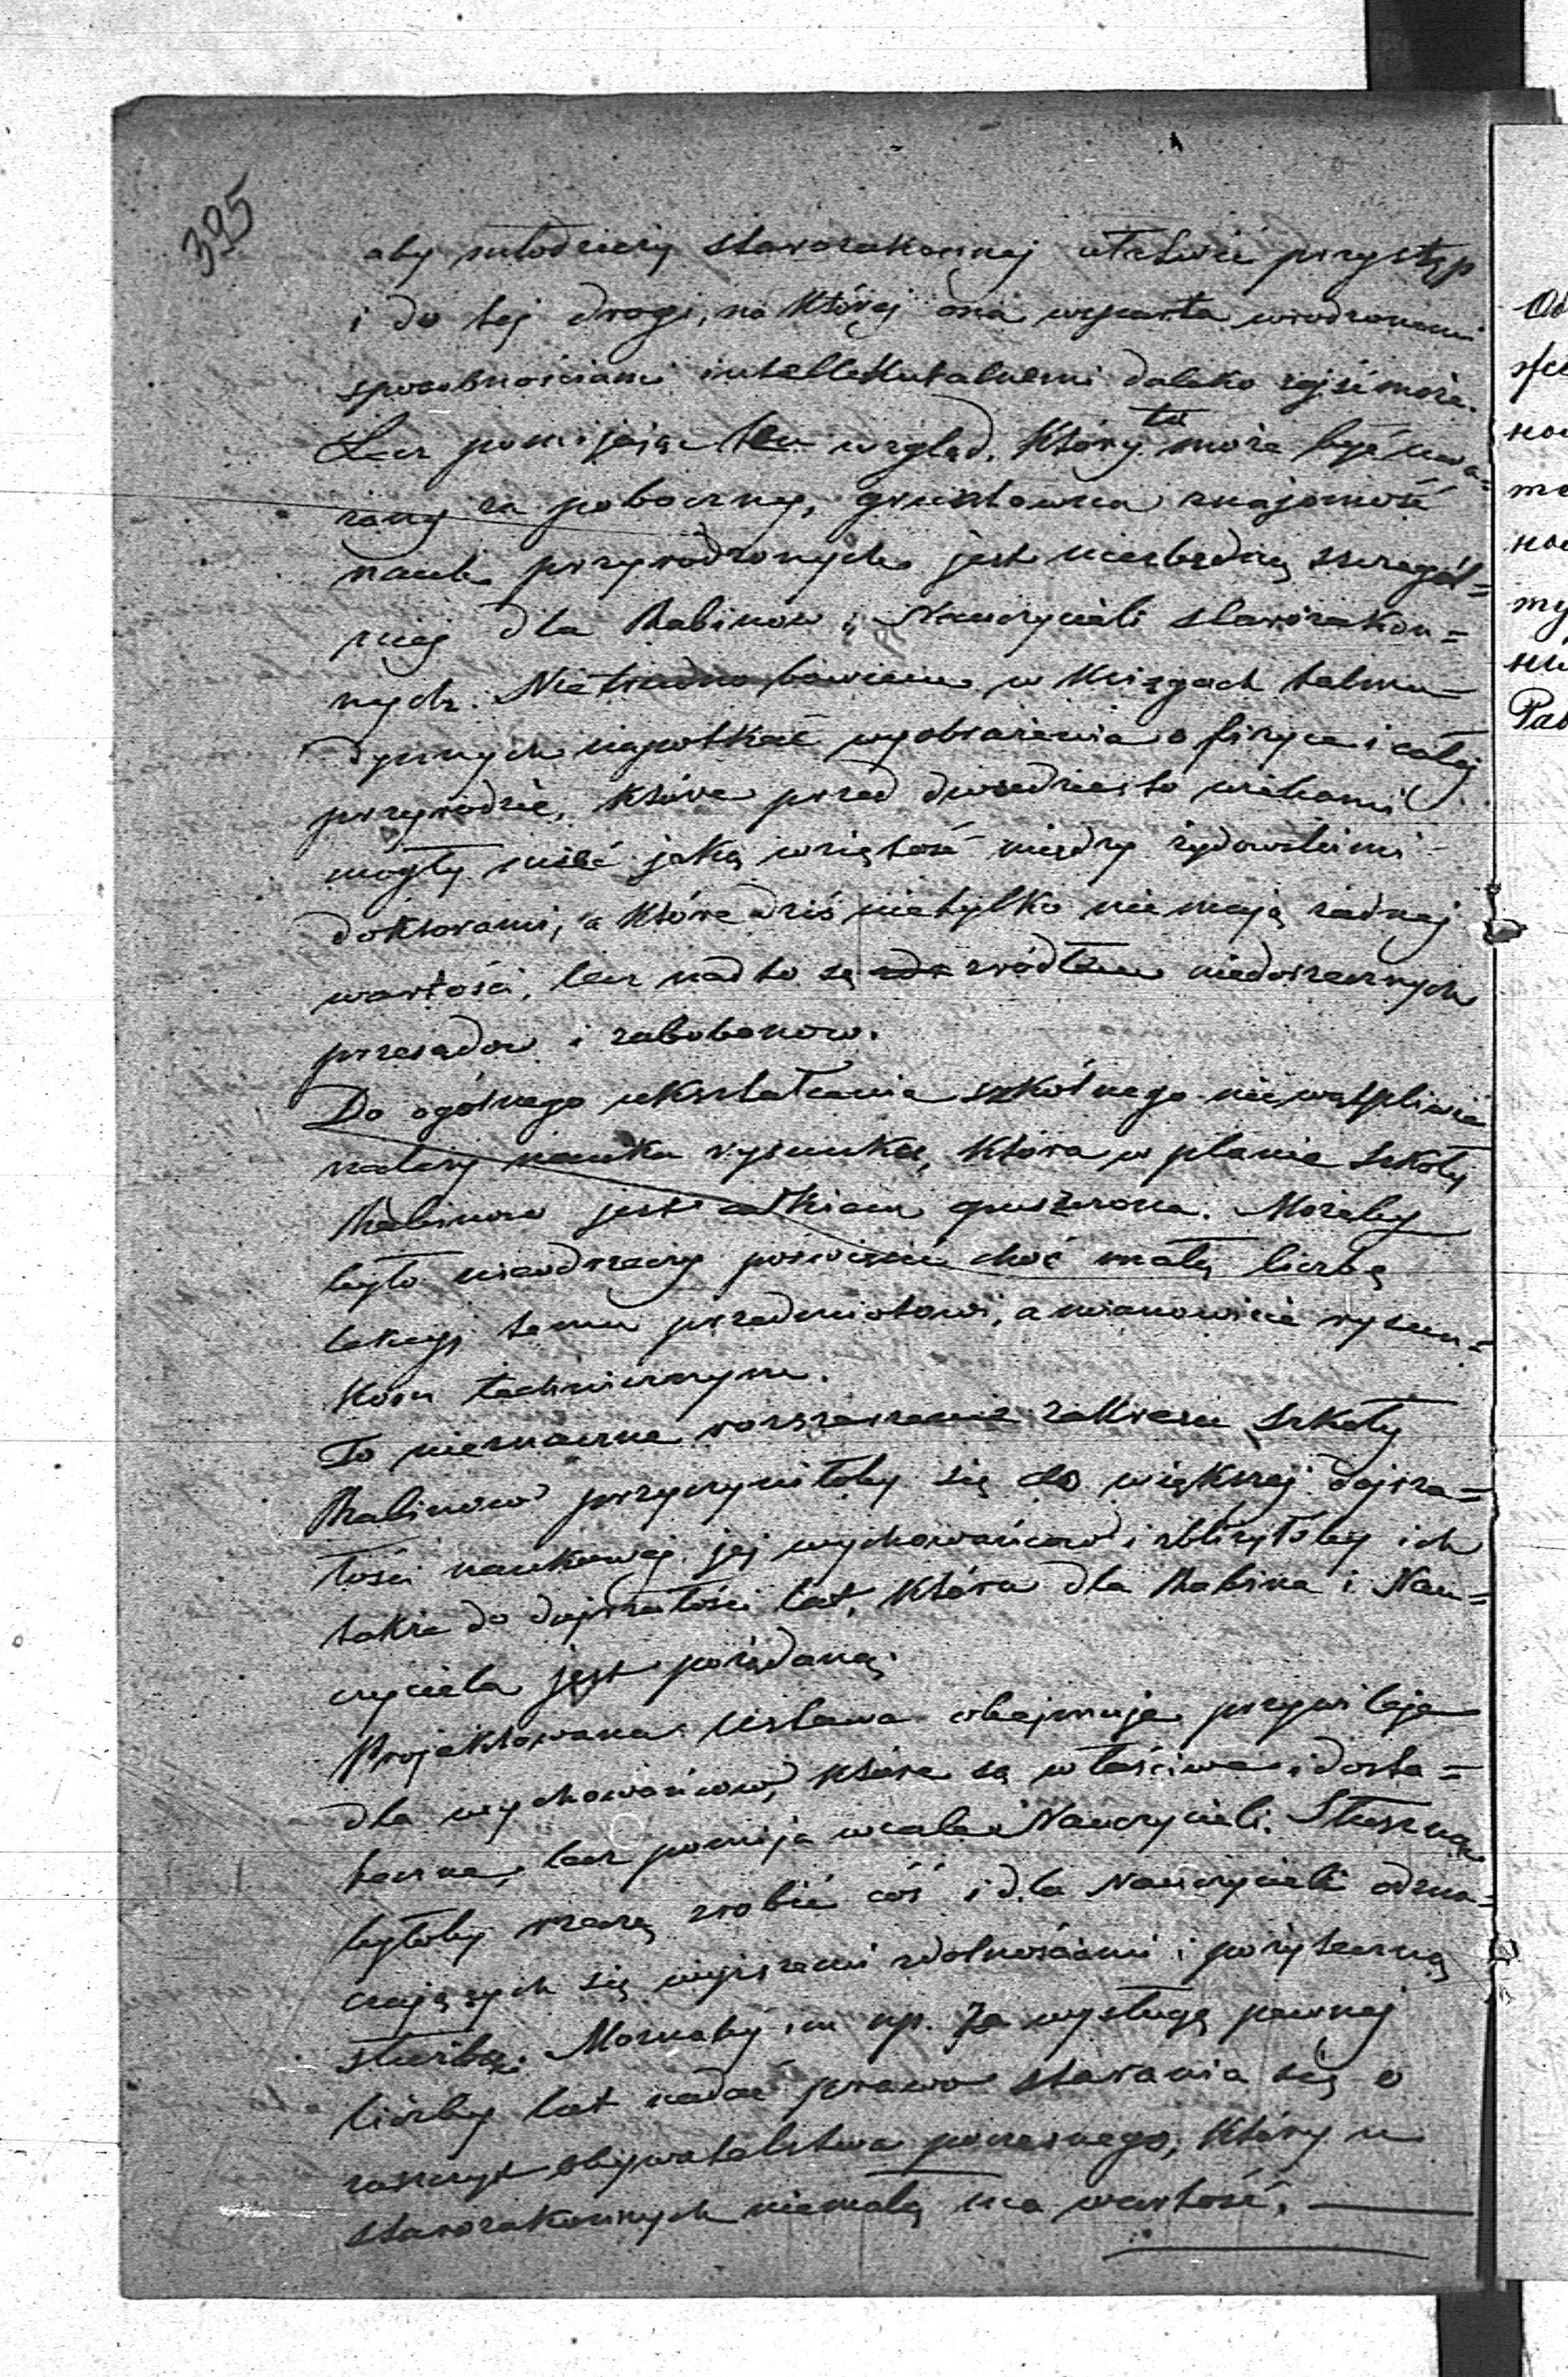 395
aby młodzieży starozakonnej ułatwić przystęp
i do tej drogi, na której ona wsparta wrodzonemi
sposobnościami intellektutalnemi daleko zajść może.
Lecz pomijając ten wzgląd, który tu może być uwa=
żany za poboczny, gruntowna znajomość
nauk przyrodzonych jest niezbędną szczegól=
niej dla Rabinow i Nauczycieli starozakon=
nych. Nietrudno bowiem w księgach talmu=
dycznych napotkać wyobrażenia o fizyce i całej
przyrodzie, które przed dwudziesto wiekami
mogły mieć jaką wziętość między żydowskimi
doktorami, a które dziś nietylko nie mają żadnej
wartości, lecz nadto są źródłem niedorzecznych
przesądow i zabobonow.
Do ogólnego ukształcenia szkólnego niewątpliwie
należy nauka rysunku, która w planie szkoły
Rabinow jest całkiem opuszczona. Możeby
było nieodrzeczy poświęcić choć małą liczbę
lekcyj temu przedmiotowi, a mianowicie rysun=
kom technicznym.
To nieznaczne rozszerzenie zakresu Szkoły
Rabinow przyczyniłoby się do większej dojrza=
łości naukowej jej wychowańcow i zbliżyłoby ich
także do dojrzałości lat, która dla Rabina i Nau=
czyciela jest pożądaną.
Projektowana Ustawa obejmuje przywileje
dla wychowańcow, które są właściwe i dosta=
teczne, lecz pomija wcale Nauczycieli. Słuszną
byłoby rzeczą zrobić coś i dla Nauczycieli odzna=
czających się wyższemi zdolnościami i pożyteczną
służbą. Moznaby im np. za wysługę pewnej
liczby lat nadać prawo starania się o
zaszczyt obywatelstwa poczesnego, który u
starozakonnych niemałą ma wartość.
Od